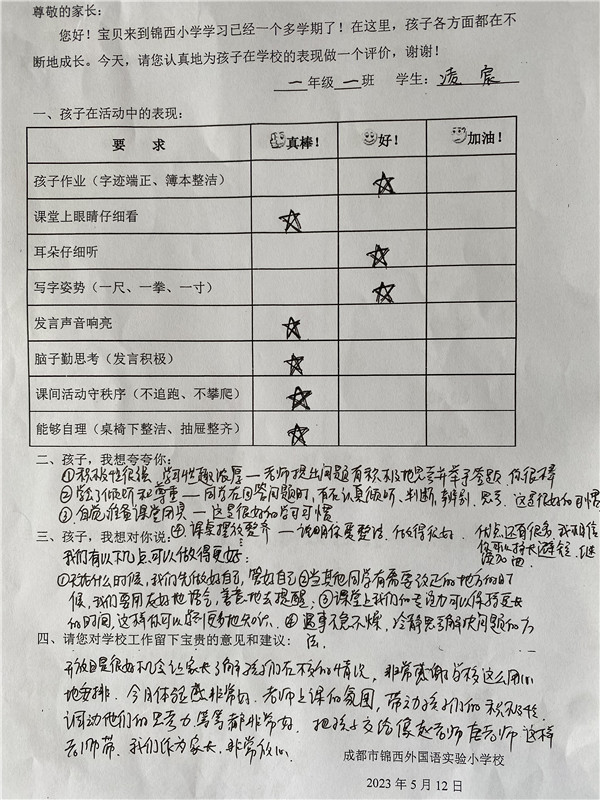 尊敬的家长：
您好！宝贝来到锦西小学学习已经一个多学期了！在这里，孩子各方面都在不
断地成长。今天，请您认真地为孩子在学校的表现做一个评价，谢谢！
一年级一班 学生：凌宸
一、孩子在活动中的表现：
要 求 真棒！ 好！ 加油！
孩子作业（字迹端正、簿本整洁）
课堂上眼睛仔细看
耳朵仔细听
写字姿势（一尺、一拳、一寸）
发言声音响亮
脑子勤思考（发言积极）
课间活动守秩序（不追跑、不攀爬）
能够自理（桌椅下整洁、抽屉整齐）
二、孩子，我想夸夸你：
①积极性很强、学习性趣浓厚—老师提出问题有积极地思考并举手答题 你很棒
②学会了倾听和尊重—同学在回答问题时，有在认真倾听、判断，辨别，思考 这是很好的习惯
③自觉准备课堂用具—这是很好的学习习惯
④课桌摆放整齐—说明你爱整洁 做得很好 优点还有很多，我相信
三、孩子，我想对你说：
你可以持
我们有以下几点可以做得更好：
①无论什么时候，我们先做好自己，管好自己②当其他同学有需要改正的地方的时
候，我们要用友好地，善意地去提醒；③课堂上我们的专注力可以保持更长
的时间，这样你可以学得更多地知识。④遇事不急不燥，冷静思考解决问题的方
法
四、请您对学校工作留下宝贵的意见和建议：
开放日是很好机会让家长了解孩子们在校的情况，非常感谢学校这么用心
地安排。今日体验感非常好。老师上课的氛围，带动孩子们的积极性，
调动他们的思考力等等都非常好。把孩子交给像赵老师 唐老师 这样
老师带，我们作为家长，非常放心
成都市锦西外国语实验小学校
2023年5月12日